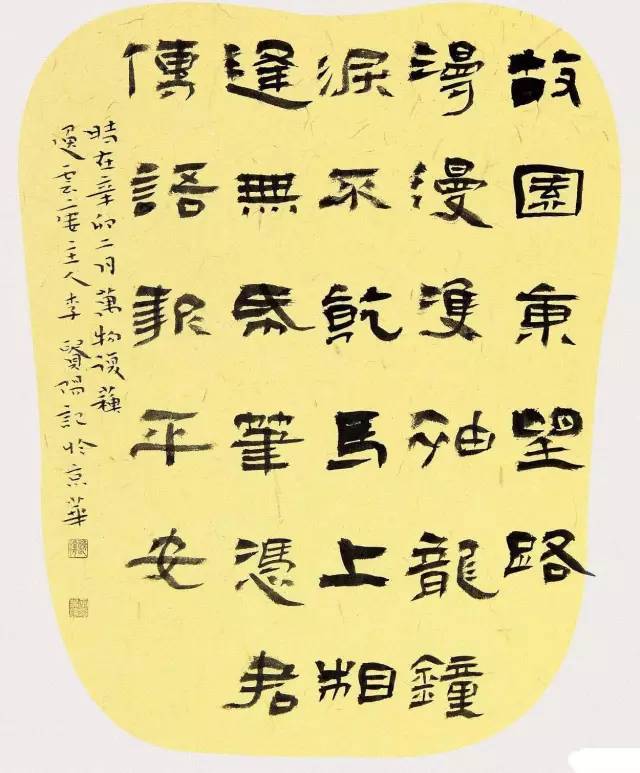 故園東望路
漫漫雙袖龍鐘
淚不乾馬上相
逢無帋筆憑君
傳語報平安
時在辛卯二月萬物復蘇
雲主人李賢陽記於京華